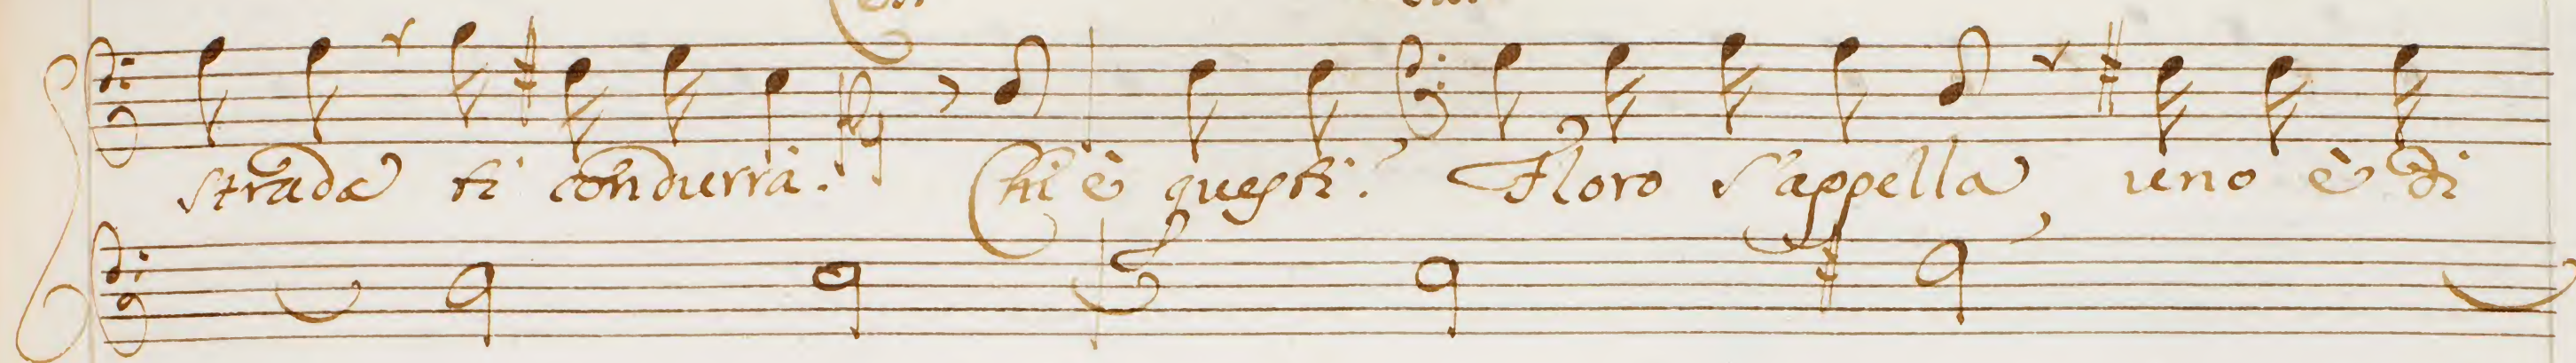 strada ti condurrà. Chi è questi? Floro s'appella, uno è di